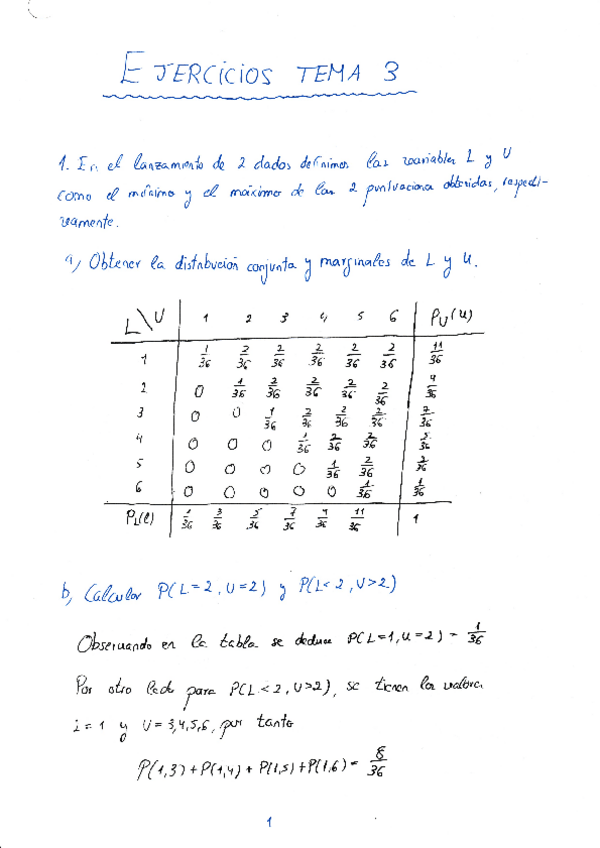 EJERCICIOS TEMA 3
1. En el lanzamiento de 2 dados definimos las variables L y U
como el mínimo y el máximo de las 2 puntuaciones obtenidas, respecti-
vamente.
a) Obtener la distribución conjunta y marginales de L y U.
L\U 1 2 3 4 5 6 PU(u)
1 1/36 2/36 2/36 2/36 2/36 2/36 11/36
2 0 1/36 2/36 2/36 2/36 2/36 9/36
3 0 0 1/36 2/36 2/36 2/36 7/36
4 0 0 0 1/36 2/36 2/36 5/36
5 0 0 0 0 1/36 2/36 3/36
6 0 0 0 0 0 1/36 1/36
PL(l) 1/36 3/36 5/36 7/36 9/36 11/36 1
b) Calcular P(L=2, U=2) y P(L<2, U>2)
Observando en la tabla se deduce P(L=1, U=2) = 1/36
Por otro lado para P(L<2, U>2), se tienen los valores
L=1 y U=3,4,5,6, por tanto
P(1,3)+P(1,4)+P(1,5)+P(1,6)= 8/36
1